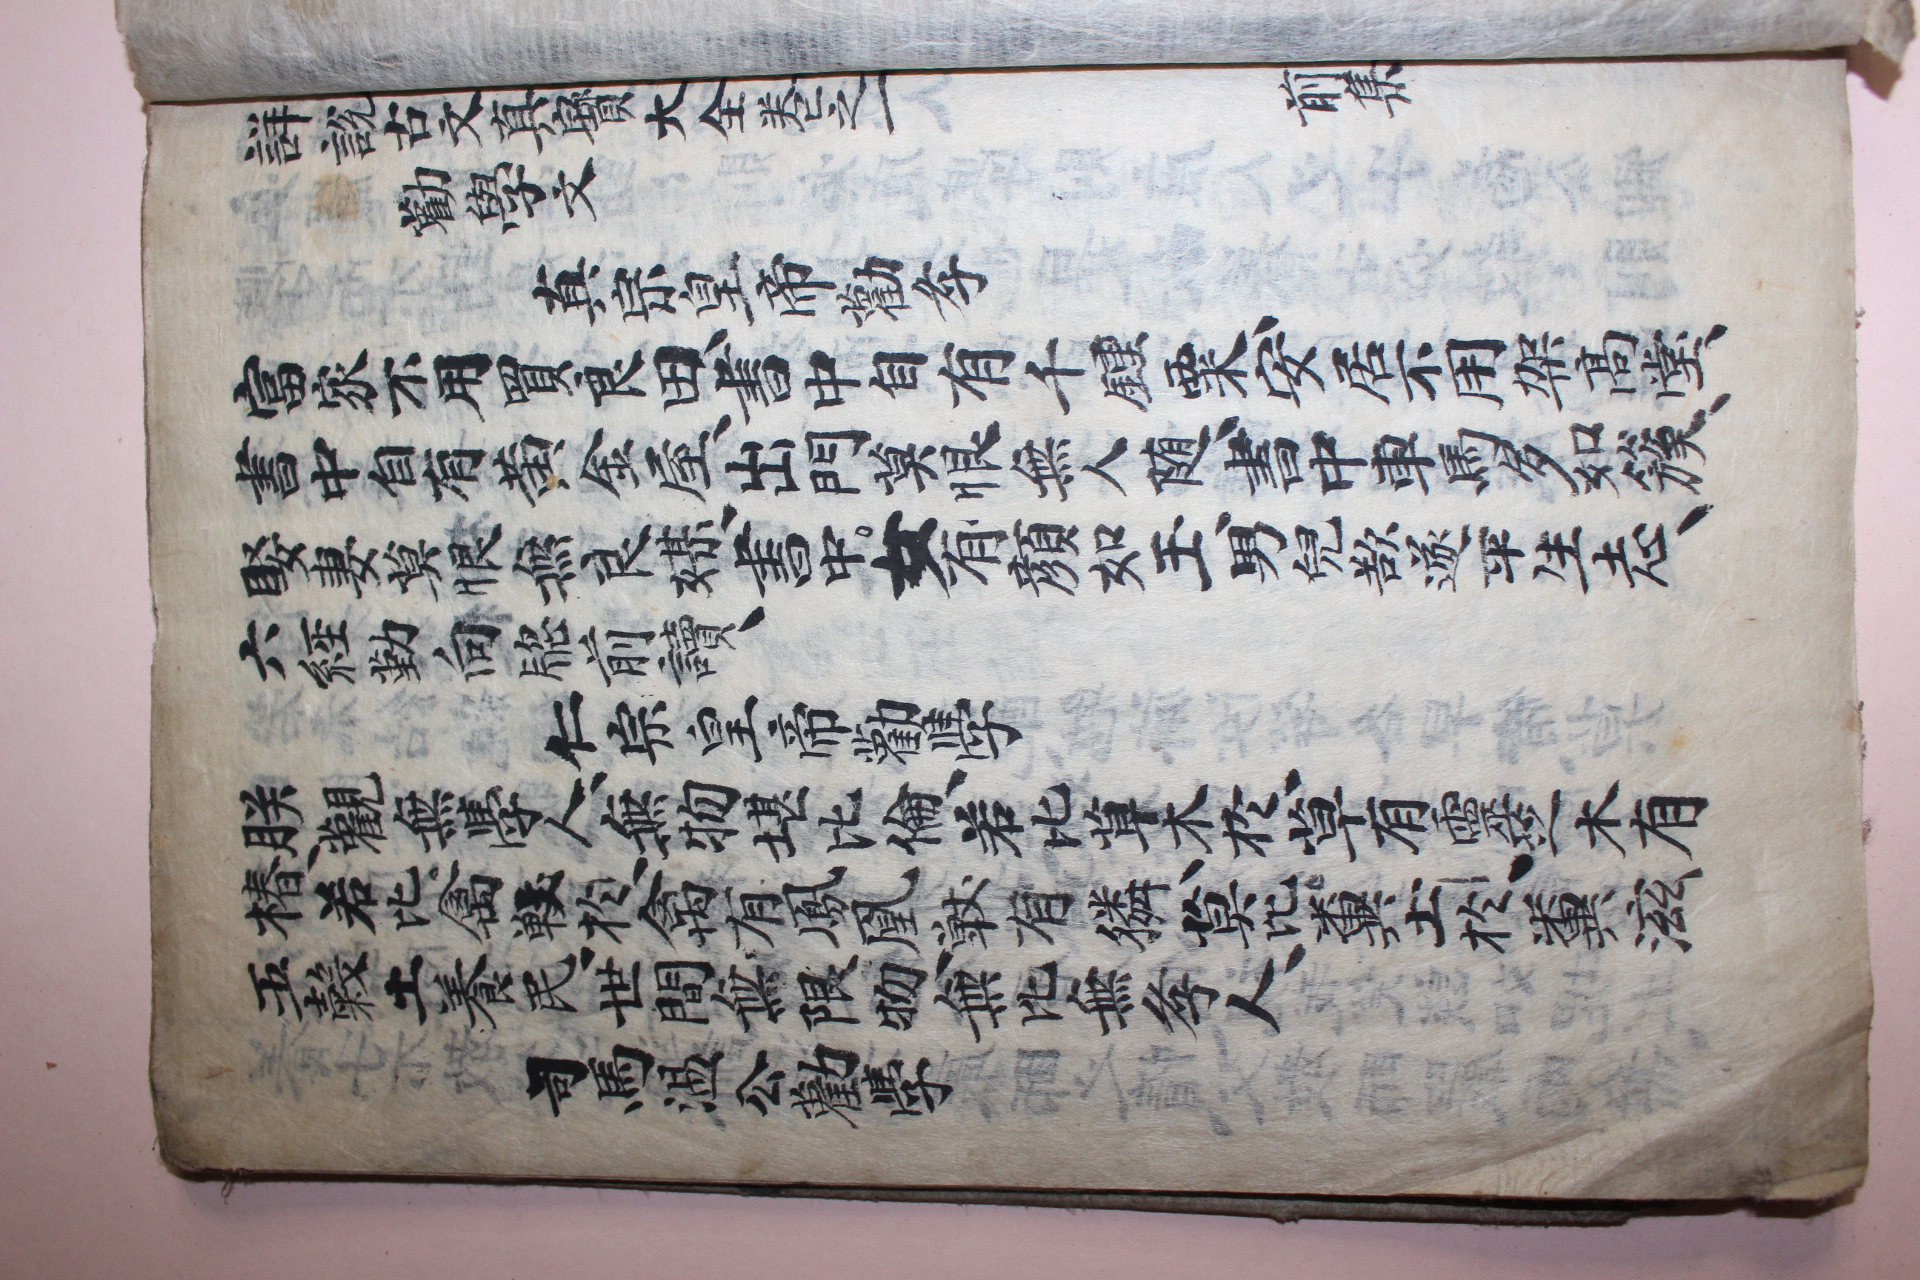 詳說古文真寶大全卷之一 前集
勸學文
真宗皇帝勸孝
富家不用買良田書中自有千鍾粟安居不用架高堂
書中自有黃金屋出門莫恨無人随書中車馬多如簇
娶妻莫恨無良媒書中女有顔如玉男兒欲遂平生志
六經勤向牕前讀
仁宗皇帝勸學
朕觀無學人無物堪比倫若比草木於草有靈芝木有
椿若比禽獸於禽有鳳凰獸有獜莫比糞土於糞滋
五穀土養民世間無限物無比無孝人
司馬温公勸學